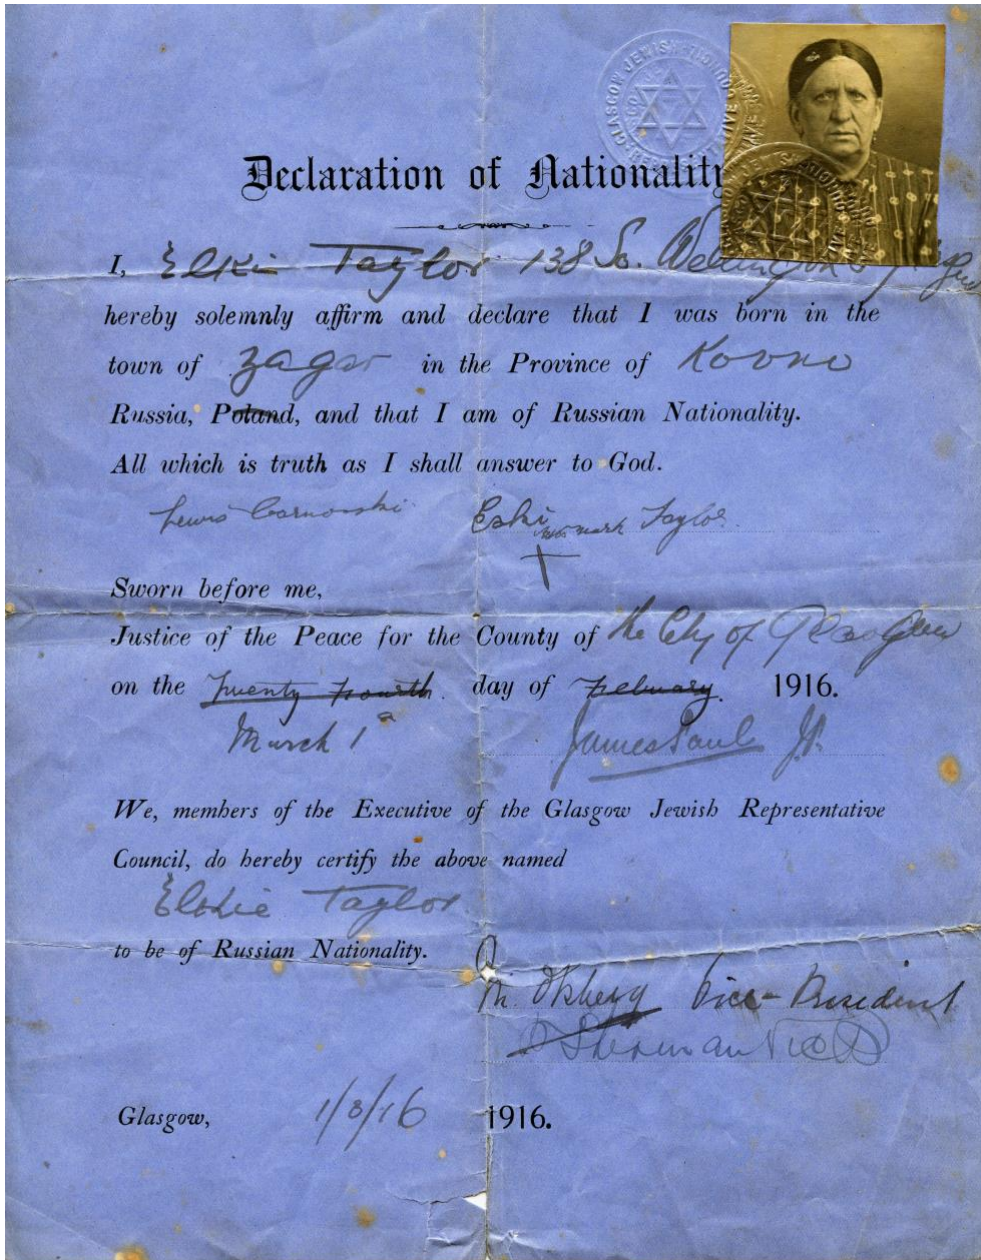 GLASGOW JEWISH
Declaration of Nationality
I, Elkie Taylor 138 So. Wellington
hereby solemnly affirm and declare that I was born in the
town of Zagar in the Province of Kovno
Russia, Poland, and that I am of Russian Nationality.
All which is truth as I shall answer to God.
Lewis Eski Taylor
mark
Sworn before me,
Justice of the Peace for the County of the City of Glasgow
on the Twenty Fourth day of February 1916.
March 1 James Paul J.P.
We, members of the Executive of the Glasgow Jewish Representative
Council, do hereby certify the above named
Elokie Taylor
to be of Russian Nationality.
M. Vice-President
Glasgow, 1/3/16 1916.